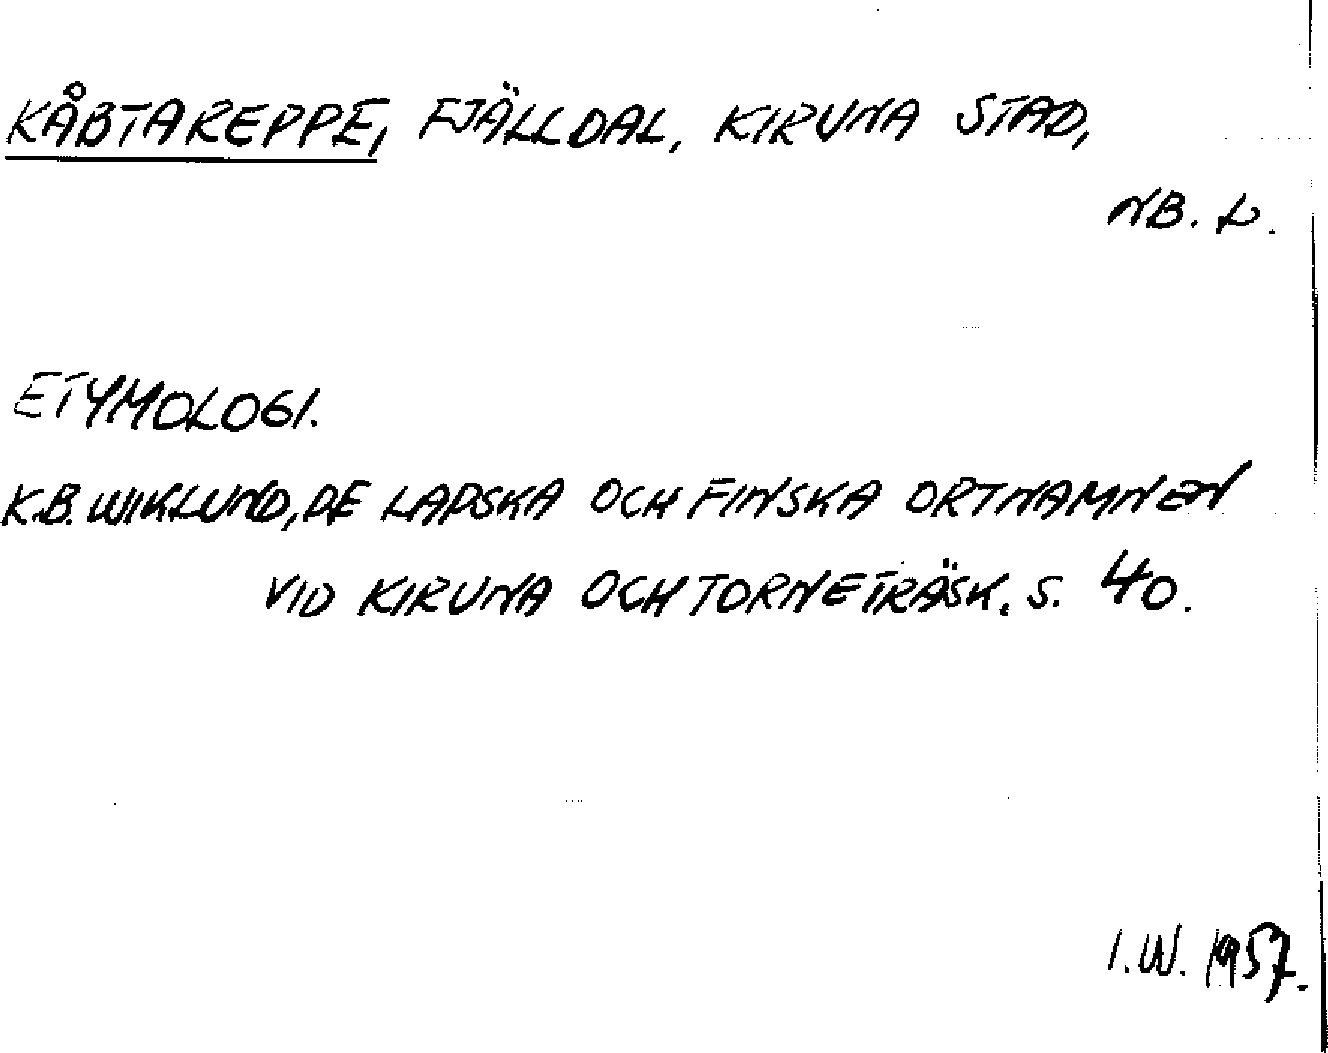 KÅBTAREPPE, FJÄLLDAL, KIRUNA STAD,
NB. L.
ETYMOLOGI.
K.B. WIKLUND, DE LAPSKA OCH FINSKA ORTNAMNEN
VID KIRUNA OCH TORNETRÄSK. S. 40.
I.W. 1957.